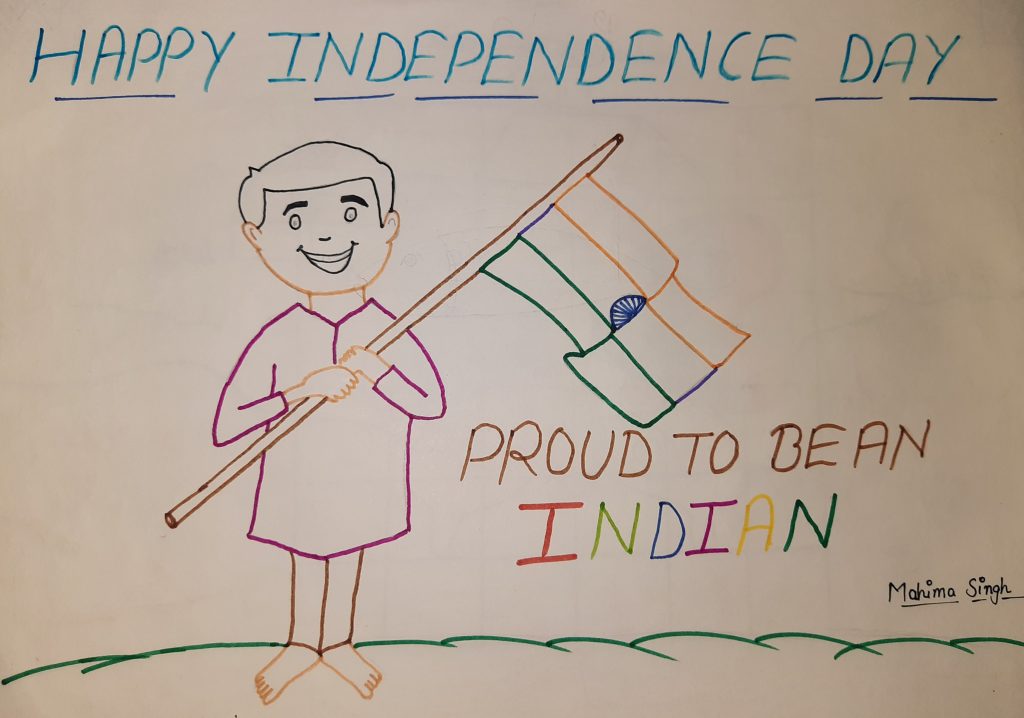 HAPPY INDEPENDENCE DAY
PROUD TO BE AN
INDIAN
Mahima Singh